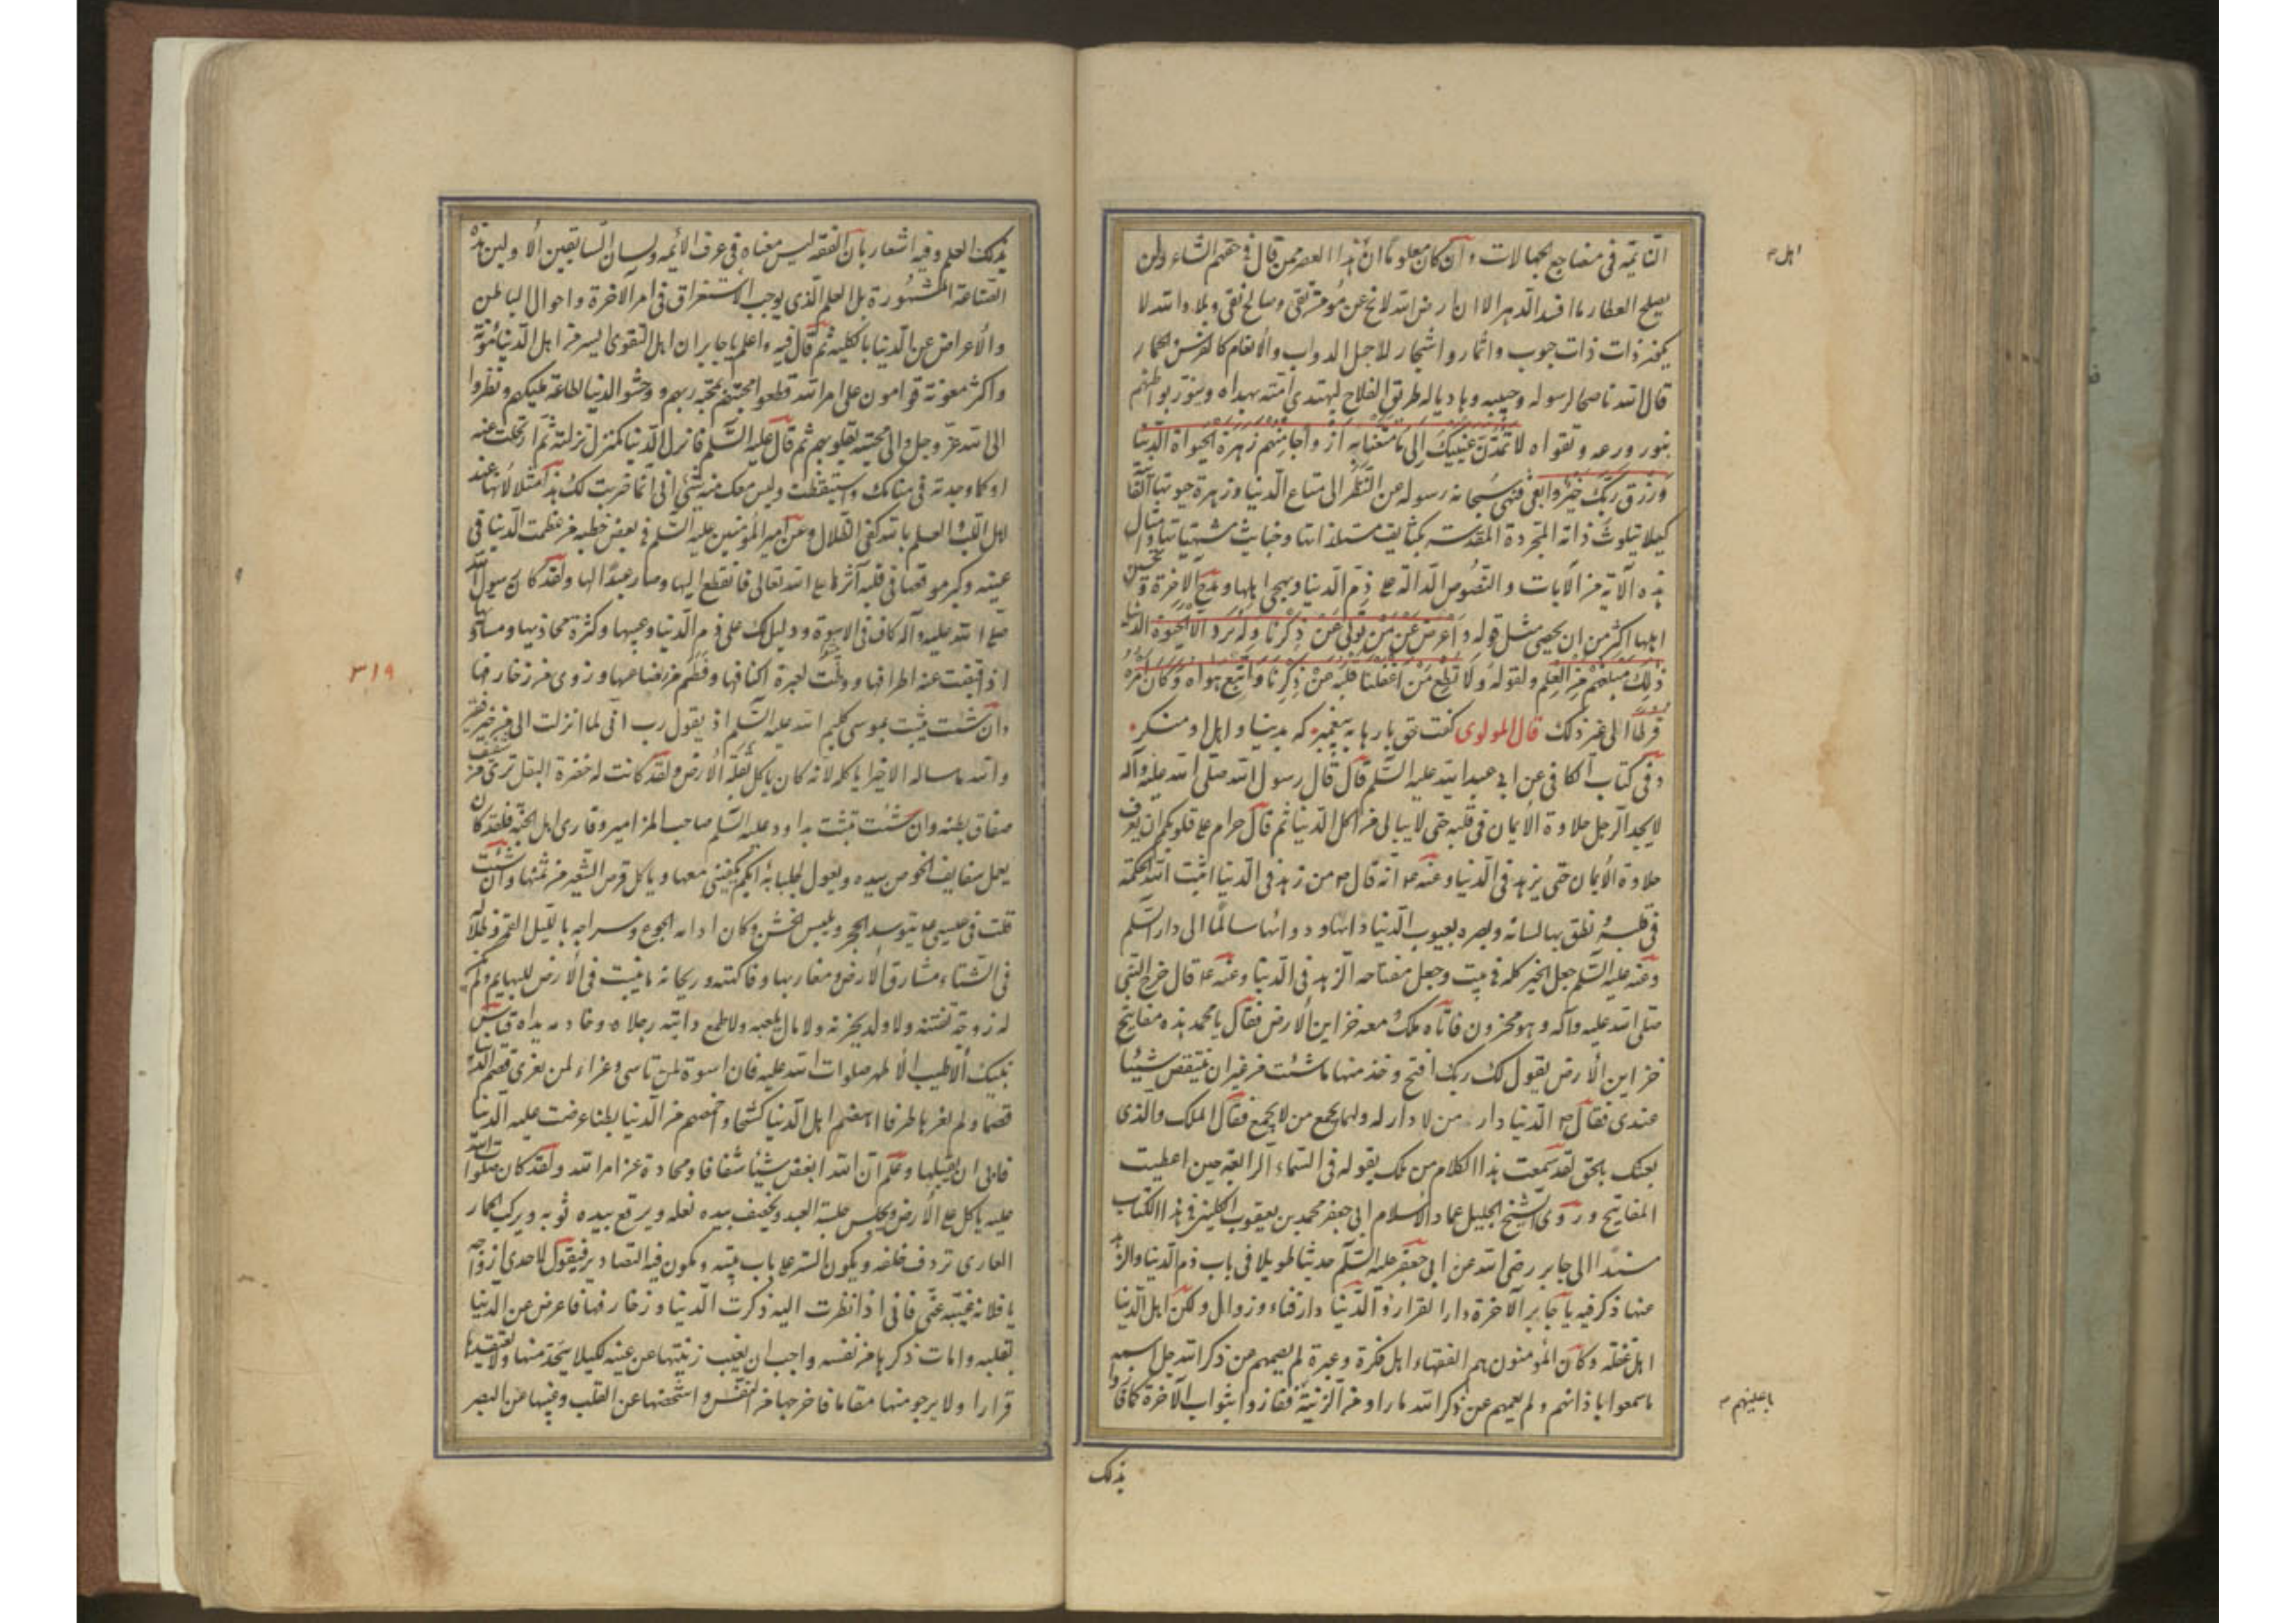 النائمة في مضاجع الجهالات وان كان معلوما ان هذا العصر ممن قال في حقهم الشاعر ولن
يصلح العطار ما افسد الدهر الا ان ارض الله لا تخ عن مؤمن تقي وصالح نقي وبلاد الله لا
ذات حبوب واثمار واشجار لاجل الدواب والانعام كالفرس والحمار
قال الله ناصحا لرسوله وحبيبه وهاديا له طريق الفلاح ليهتدي امته بهداه وينور بواطنهم
بنور ورعه وتقواه لا تمدن عينيك إلى ما متعنا به أزواجا منهم زهرة الحيوة الدنيا
ورزق ربك خير وابقى فنهى سبحانه رسوله عن النظر الى متاع الدنيا وزهرة حيوتها
كيلا يتلوث ذاته المجردة المقدسة بكثايف مستلذاتها وخبايث مشتهياتها وامثال
هذه الآية من الآيات والنصوص الدالة على ذم الدنيا وهجى اهلها ومدح الآخرة وتحسين
اهلها اكثر من ان يحصى مثل قوله وأعرض عن من تولى عن ذكرنا ولم يرد الا الحيوة الدنيا
ذلك مبلغهم من العلم ولقوله ولا تطع من اغفلنا قلبه عن ذكرنا واتبع هواه وكان امره
فرطا الى غير ذلك قال المولوى كفت حق بارها به پیغمبر که بدنيا و اهل او منكر
وفي كتاب الكافي عن ابي عبد الله عليه السلم قال قال رسول الله صلى الله عليه وآله
لا يجد الرجل حلاوة الايمان في قلبه حتى لا يبالي من اكل الدنيا ثم قال حرام على قلوبكم ان يعرف
حلاوة الايمان حتى يزهد في الدنيا وعنه ع انه قال من زهد في الدنيا اثبت الله الحكمة
في قلبه نطق بها لسانه وبصره بعيوب الدنيا داءها ودواءها سالما الى دار السلم
وعنه عليه السلم جعل الخير كله في بيت وجعل مفتاحه الزهد في الدنيا وعنه ع قال خرج النبي
صلى الله عليه وآله وهو محزون فاتاه ملك معه خزاين الارض فقال يا محمد هذه مفاتيح
خزاين الارض يقول لك ربك افتح وخذ منها ما شئت من غير ان ينقص شيئا
عندي فقال ص الدنيا دار من لا دار له ولها يجمع من لا يجمع فقال الملك والذي
بعثك بالحق لقد سمعت هذا الكلام من ملك يقوله في السماء الرابعة حين اعطيت
المفاتيح وروى الشيخ الجليل عماد الاسلام ابي جعفر محمد بن يعقوب الكليني في هذا الكتاب
مسندا الى جابر رضى الله عن ابي جعفر عليه السلم حديثا طويلا في باب ذم الدنيا والزهد
عنها ذكر فيه يا جابر الآخرة دار القرار والدنيا دار فناء وزوال ولكن اهل الدنيا
اهل غفلة وكان المؤمنون هم الفقهاء اهل فكرة وعبرة لم يصمهم عن ذكر الله جل اسمه
ما سمعوا باذانهم ولم يعمهم عن ذكر الله ما راوا من الزينة ففازوا بثواب الآخرة كما فازوا
بذلك
اهل
باعينهم
بذلك العلم وفيه اشعار بان الفقه ليس معناه في عرف الائمة ولسان السابقين الاولين هذه
الصناعة المشهورة بل العلم الذي يوجب الاستغراق في امر الآخرة واحوال الباطن
والاعراض عن الدنيا بالكلية ثم قال فيه واعلم يا جابر ان اهل التقوى ايسر من اهل الدنيا مؤنة
واكثر معونة قوامون على امر الله قطعوا محبتهم بمحبة ربهم ووحشو الدنيا لطاعة مليكهم ونظروا
الى الله عز وجل والى محبته بقلوبهم ثم قال عليه السلم فانزل الدنيا كمنزل نزلته ثم ارتحلت عنه
او كما وجدته في منامك واستيقظت وليس معك منه شئ اني انما ضربت لك هذا مثلا لانها عند
اهل اللب والعلم بالله كفئ الظلال وعن امير المؤمنين عليه السلم في بعض خطبه من عظمت الدنيا في
عينه وكبر موقعها في قلبه آثرها على الله تعالى فانقطع اليها وصار عبدا لها ولقد كان في رسول الله
صلى الله عليه وآله كاف في الاسوة ودليل لك على ذم الدنيا وعيبها وكثرة مخازيها ومساويها
اذ قبضت عنه اطرافها ووطئت لغيره اكنافها وفطم من رضاعها وزوى من زخارفها
وان شئت ثنيت بموسى كليم الله عليه السلم اذ يقول رب اني لما انزلت الي من خير فقير
والله ما ساله الا خبزا ياكله لانه كان ياكل بقلة الارض ولقد كانت له خضرة البقل ترى من شفيف
صفاق بطنه وان شئت ثلثت بداود عليه السلم صاحب المزامير وقارى اهل الجنة فلقد كان
يعمل سفايف الخوص بيده ويقول لجلسائه ايكم يكفيني معها وياكل قرص الشعير من ثمنها وان شئت
قلت في عيسى ع يتوسد الحجر ويلبس الخشن وكان ادامه الجوع وسراجه بالليل القمر وظلاله
في الشتاء مشارق الارض ومغاربها وفاكهته وريحانه ما ينبت في الارض للبهايم ولم تكن
له زوجة تفتنه ولا ولد يحزنه ولا مال يلعبه ولا طمع دابته رجلاه وخادمه يداه فتاس
بنبيك الاطيب الاطهر صلوات الله عليه فان اسوة لمن تاسى وعزاء لمن تعزى قضم الدنيا
قضما ولم يعرها طرفا اهضم اهل الدنيا كشحا واخمصهم من الدنيا بطنا عرضت عليه الدنيا
فابى ان يقبلها وعلم ان الله ابغض شيئا شقاقا ومحادة عن امر الله ولقد كان صلوات الله
عليه ياكل على الارض ويجلس جلسة العبد ويخصف بيده نعله ويرقع بيده ثوبه ويركب الحمار
العاري تردف خلفه ويكون الستر على باب بيته ويكون فيه التصاوير فيقول لاحدى ازواجه
يا فلانة غيبيه عني فاني اذا نظرت اليه ذكرت الدنيا وزخارفها فاعرض عن الدنيا
بقلبه وامات ذكرها من نفسه واحب ان يغيب زينتها عن عينه لكيلا يتخذ منها ولا يعتقدها
قرارا ولا يرجو منها مقاما فاخرجها من النفس واشخصها عن القلب وغيبها عن البصر
٣١٩